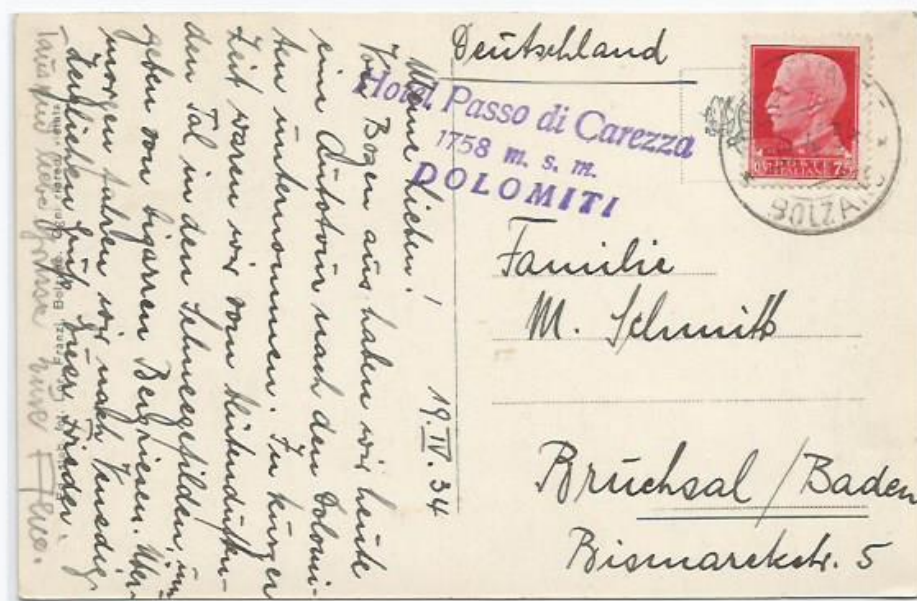 Deutschland
Hotel Passo di Carezza
1758 m. s. m.
DOLOMITI
POSTE
ITALIANE
BOLZANO
Familie
M. Schmitt
Bruchsal / Baden
Bismarckstr. 5
19.IV.34
Meine Lieben!
Von Bozen aus haben wir heute
eine Autotour nach den Dolomi-
ten unternommen. In kurzer
Zeit waren wir vom blütenduften-
den Tal in den Schneegefilden, um-
geben von bizarren Bergriesen. Über-
morgen fahren wir nach Venedig.
Herzlichen Gruß Euer Frieder
Tausend Grüsse